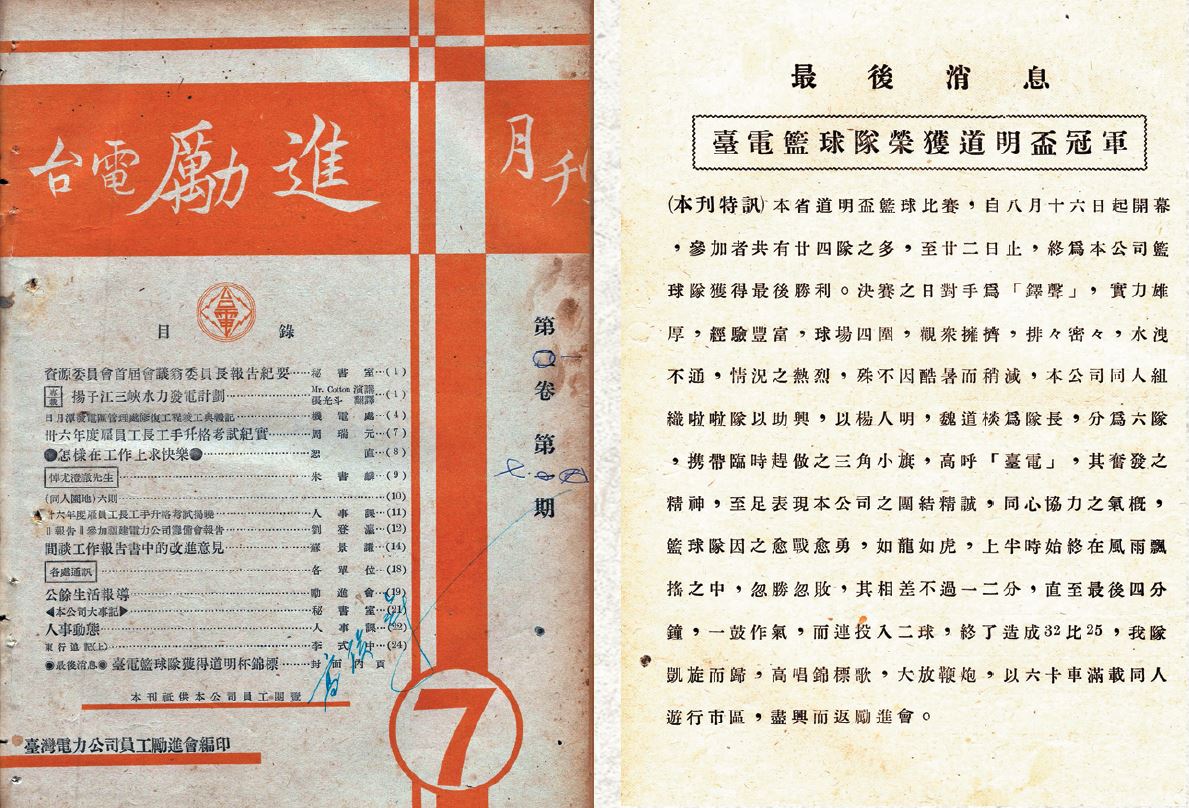 台電勵進月刊
目錄
資源委員會首屆會議翁委員長報告紀要……秘書室…(1)
專載 揚子江三峽水力發電計劃……Mr. Cotton 演講 張光斗 翻譯…(1)
日月潭發電區管理處修復工程竣工典禮記……機電處…(4)
卅六年度雇員工長工手升格考試紀實……周瑞元…(7)
●怎樣在工作上求快樂●……恕直…(8)
悼尤澄澂先生……朱書麟…(9)
(同人園地)六則……(10)
卅六年度雇員工長工手升格考試揭曉……人事課…(11)
‖報告‖參加福建電力公司籌備會報告……劉登瀛…(12)
閒談工作報告書中的改進意見……蘇景謙…(14)
各處通訊……各單位…(18)
公餘生活報導……勵進會…(19)
◀本公司大事記▶……秘書室…(21)
人事動態……人事課…(22)
東行追記(上)……李式中…(24)
●最後消息●臺電籃球隊獲得道明杯錦標……封面內頁
本刊祇供本公司員工閱覽
臺灣電力公司員工勵進會編印
第 卷 第 期
7
最後消息
臺電籃球隊榮獲道明盃冠軍
(本刊特訊)本省道明盃籃球比賽，自八月十六日起開幕
，參加者共有廿四隊之多，至廿二日止，終爲本公司籃
球隊獲得最後勝利。決賽之日對手爲「鐸聲」，實力雄
厚，經驗豐富，球場四圍，觀衆擁擠，排々密々，水洩
不通，情況之熱烈，殊不因酷暑而稍減，本公司同人組
織啦啦隊以助興，以楊人明，魏道棪爲隊長，分爲六隊
，携帶臨時趕做之三角小旗，高呼「臺電」，其奮發之
精神，至足表現本公司之團結精誠，同心協力之氣概，
籃球隊因之愈戰愈勇，如龍如虎，上半時始終在風雨飄
搖之中，忽勝忽敗，其相差不過一二分，直至最後四分
鐘，一鼓作氣，而連投入二球，終了造成32比25，我隊
凱旋而歸，高唱錦標歌，大放鞭炮，以六卡車滿載同人
遊行市區，盡興而返勵進會。